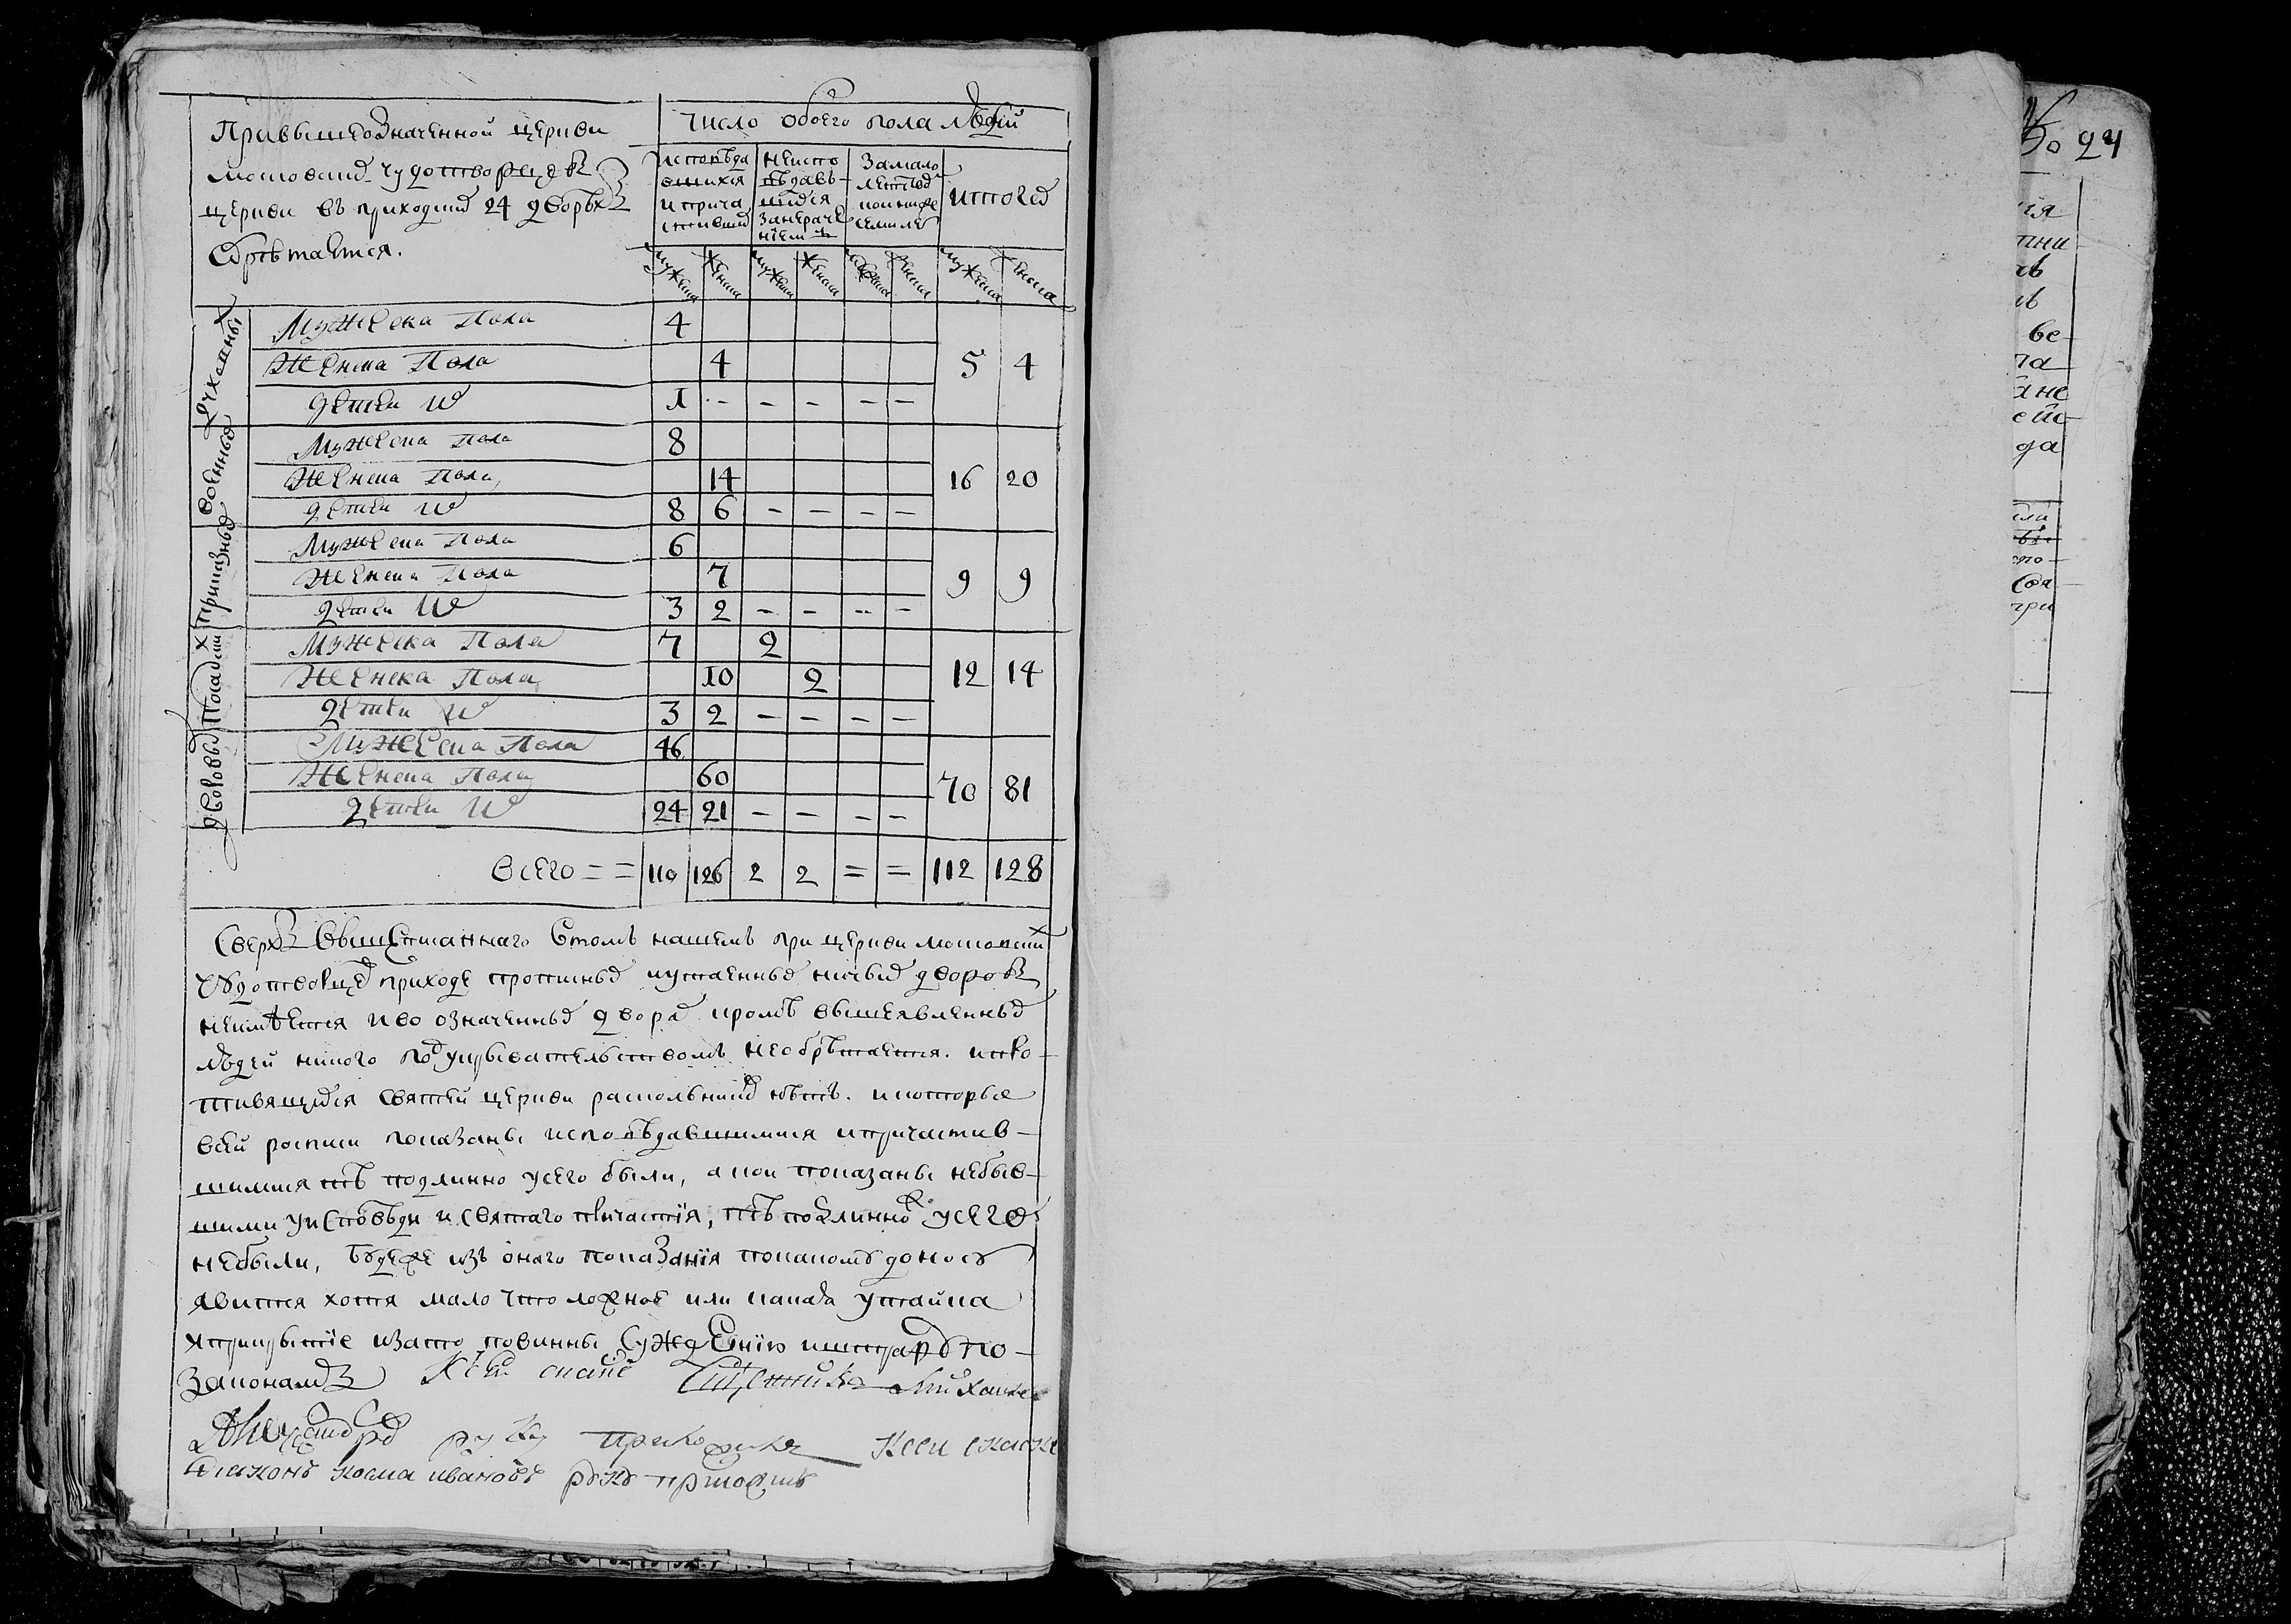 При вышеозначенной церкви
московских чудотворцовъ
церкви въ приходских 24 дворѣхъ
обрѣтается.
число обоего пола людей
исповѣдавшихся и причастившихся
неисповѣдавшихся за нерачениемъ
За малолетством
итого
мужеска женска мужеска женска мужеска женска мужеска женска
духовных
Мужеска Пола 4
Женска Пола 4 5 4
детей их 1 - - - - -
военных
Мужеска Пола 8
Женска Пола 14 16 20
детей их 8 6 - - - -
приказных
Мужеска Пола 6
Женска Пола 7 9 9
детей их 3 2 - - - -
посадских
Мужеска Пола 7 2
Женска Пола 10 2 12 14
детей их 3 2 - - - -
дворовых
Мужеска Пола 46
Женска Пола 60 70 81
детей их 24 21 - - - -
всего = = 110 126 2 2 = = 112 128
Сверхъ вышеписанного в томъ нашемъ при церкви московских
чудотворцовъ приходе пропиных и пустаенных никаких дворовъ
неимѣется и во означенных дворах кромѣ вышеявленных
людей никого под укрывательствомъ не обрѣтается. и про-
тивящихся святей церкви раскольников нѣтъ. и которые
в сей росписи показаны исповѣдавшимися и причастив-
шимися тѣ подлинно у сего были, а кои показаны небыв-
шими у исповѣди и святаго причастїя, тѣ подлинно ж у сего
небыли, буде же изъ оного показанїя по какому доносу
явится хотя мало что ложное или какая утайка
и прикрытїе и за то повинны суждению и штрафу по
законамъ К сей скаске Священникъ Михаил
Александров руку приложилъ К сей скаске
диаконъ косма ивановъ руку приложилъ
94